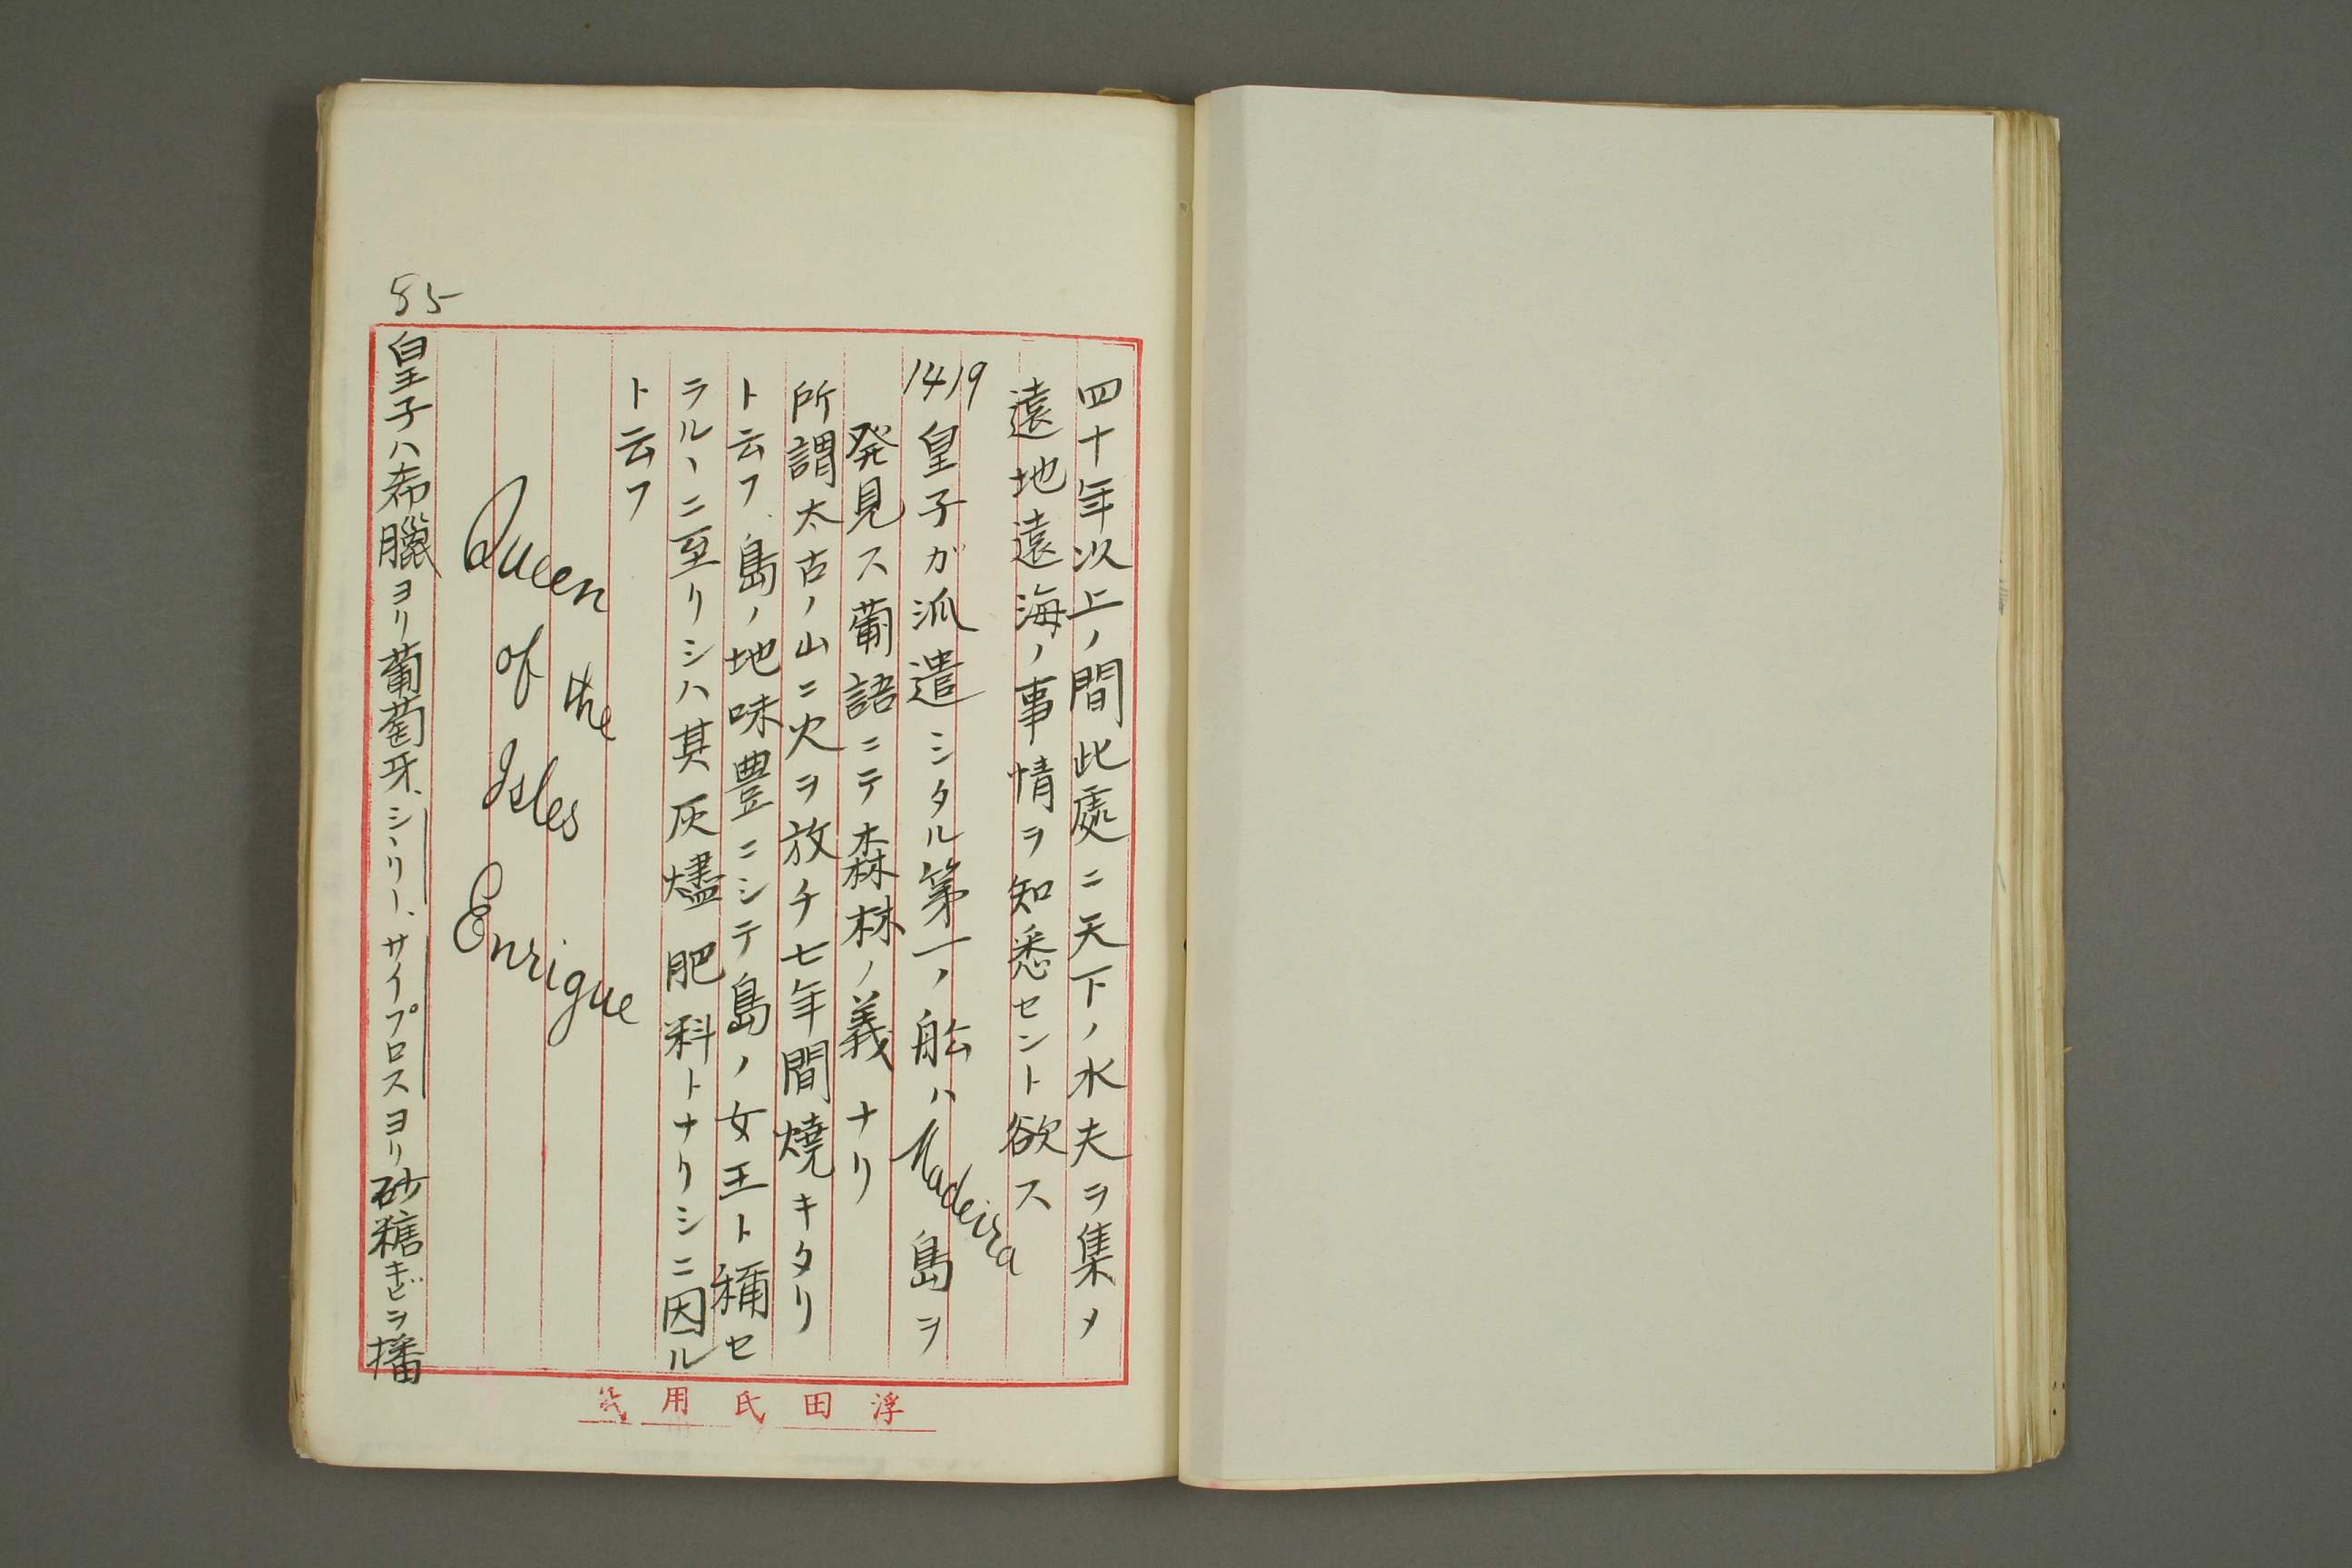 四十年以上ノ間此處ニ天下ノ水夫ヲ集メ
遠地遠海ノ事情ヲ知悉セント欲ス
1419 皇子ガ派遣シタル第一ノ舩ハ Madeira 島ヲ
発見ス葡語ニテ森林ノ義ナリ
所謂太古ノ山ニ火ヲ放チ七年間焼キタリ
ト云フ島ノ地味豊ニシテ島ノ女王ト稱セ
ラルヽニ至リシハ其灰燼肥料トナリシニ因ル
ト云フ
Queen of the Isles
Enrique
85
皇子ハ希臘ヨリ葡萄牙、シヽリー、サイプロスヨリ砂糖キビヲ播
浮田氏用箋